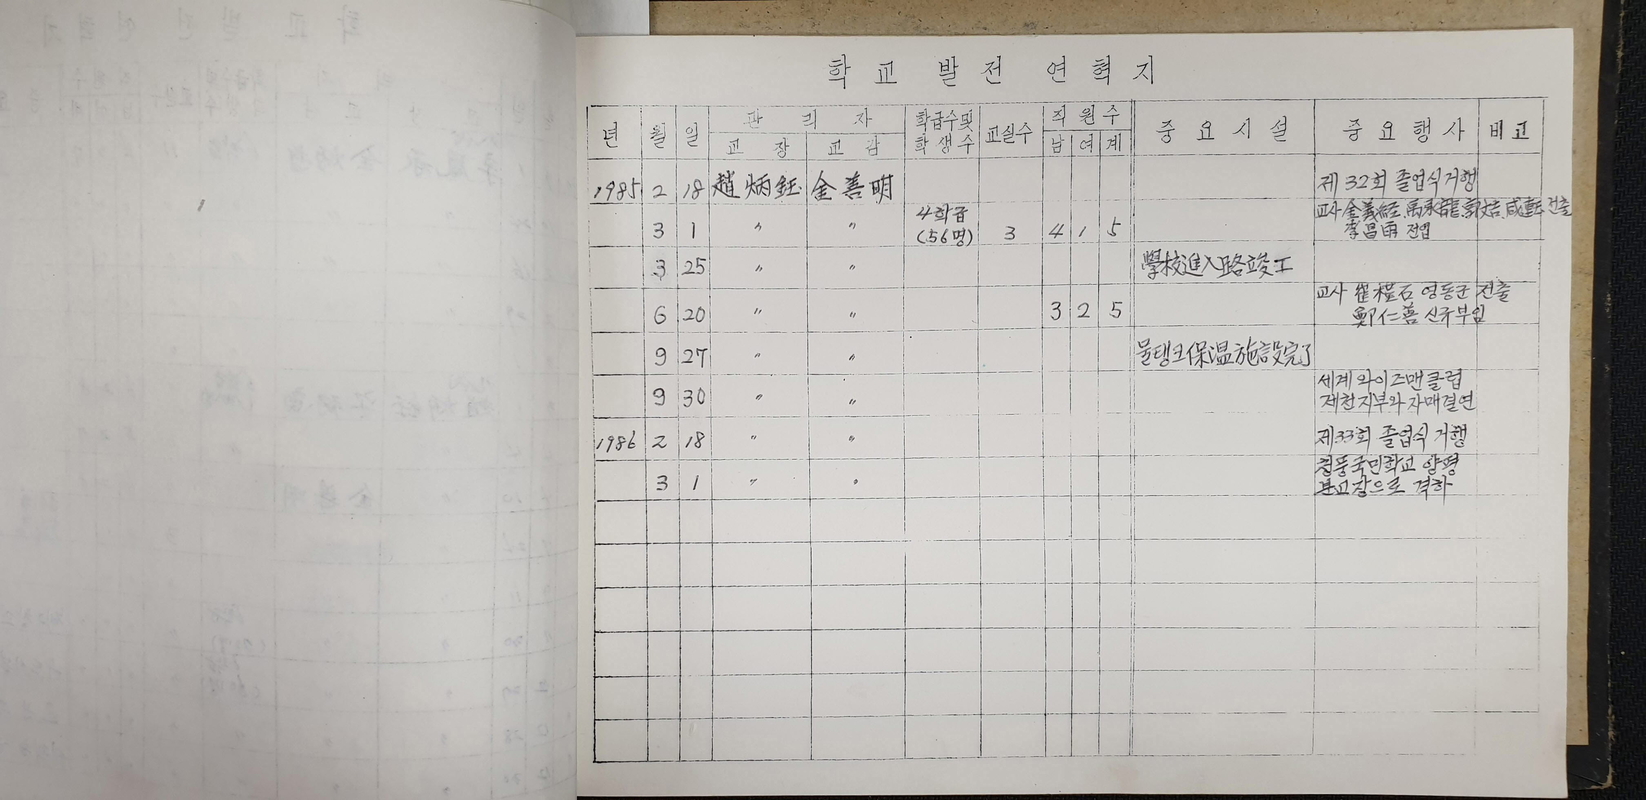 학교 발전 연혁지
년 월 일 관리자 학급수및 교실수 직원수 중요시설 중요행사 비고
교장 교감 학생수 남 여 계
1985 2 18 趙炳鈺 金善明 제32회 졸업식거행
3 1 〃 〃 4학급 교사 金義經 전출
(56명) 3 4 1 5 李昌雨 전입
3 25 〃 〃 學校進入路竣工
교사 崔 石 영동군 전출
6 20 〃 〃 3 2 5 鄭仁善 신규부임
9 27 〃 〃 물탱크保温施設完了
세계와이즈맨클럽
9 30 〃 〃 제천지부와자매결연
1986 2 18 〃 〃 제33회 졸업식거행
청풍국민학교 양평
3 1 〃 〃 분교장으로 격하